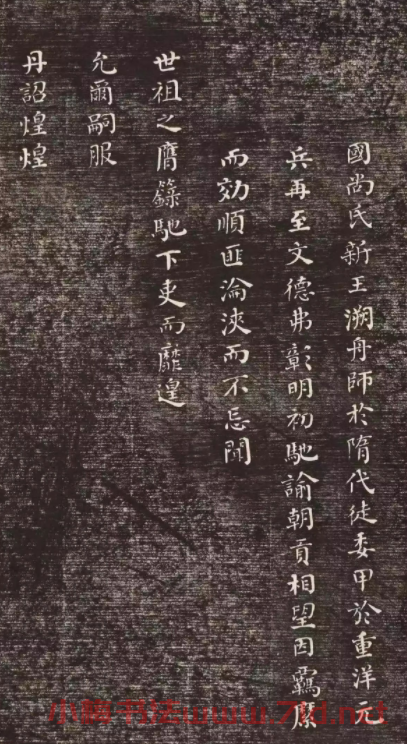 國尚氏新王溯舟師於隋代徒委甲於重洋元
兵再至文德弗彰明初馳諭朝貢相望因羈縻
而効順匪淪浹而不忘聞
世祖之膺籙馳下吏而靡遑
允爾嗣服
丹詔煌煌
小楷书法www.7ld.net